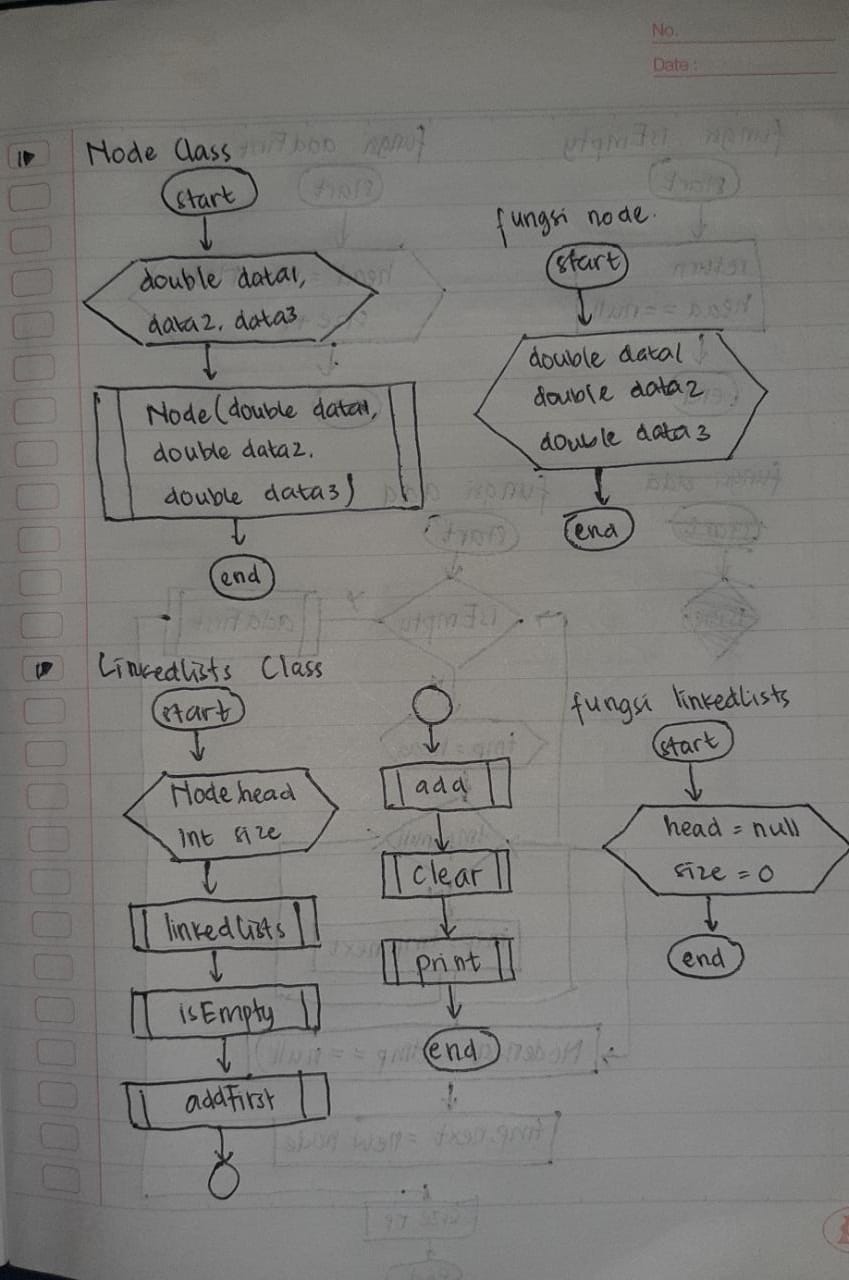 No.
Date:
Node Class
start
double data1,
data2, data3
Node(double data1,
double data2,
double data3)
end
fungsi node.
start
double data1
double data2
double data3
end
Linkedlists Class
start
Node head
int size
linkedlists
isEmpty
addFirst
add
clear
print
end
fungsi linkedLists
start
head = null
size = 0
end